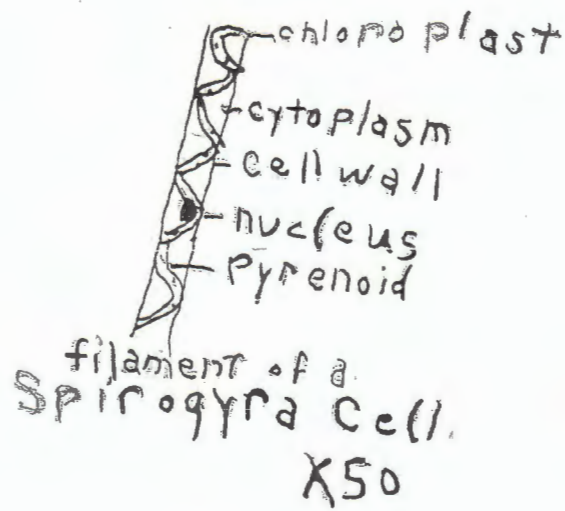 chloroplast
cytoplasm
cell wall
nucleus
Pyrenoid
filament of a
Spirogyra Cell.
X50